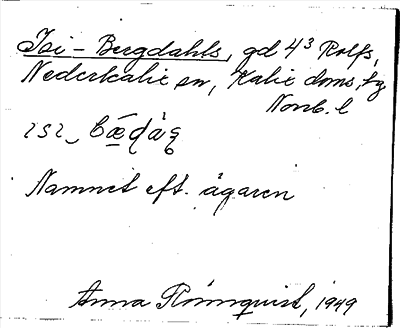 Isi - Bergdahls, gd 4³ Rolfs,
Nederkalix sn, Kalix doms. tg
Norrb. l
Namnet eft. ägaren
Anna Rönnquist, 1949